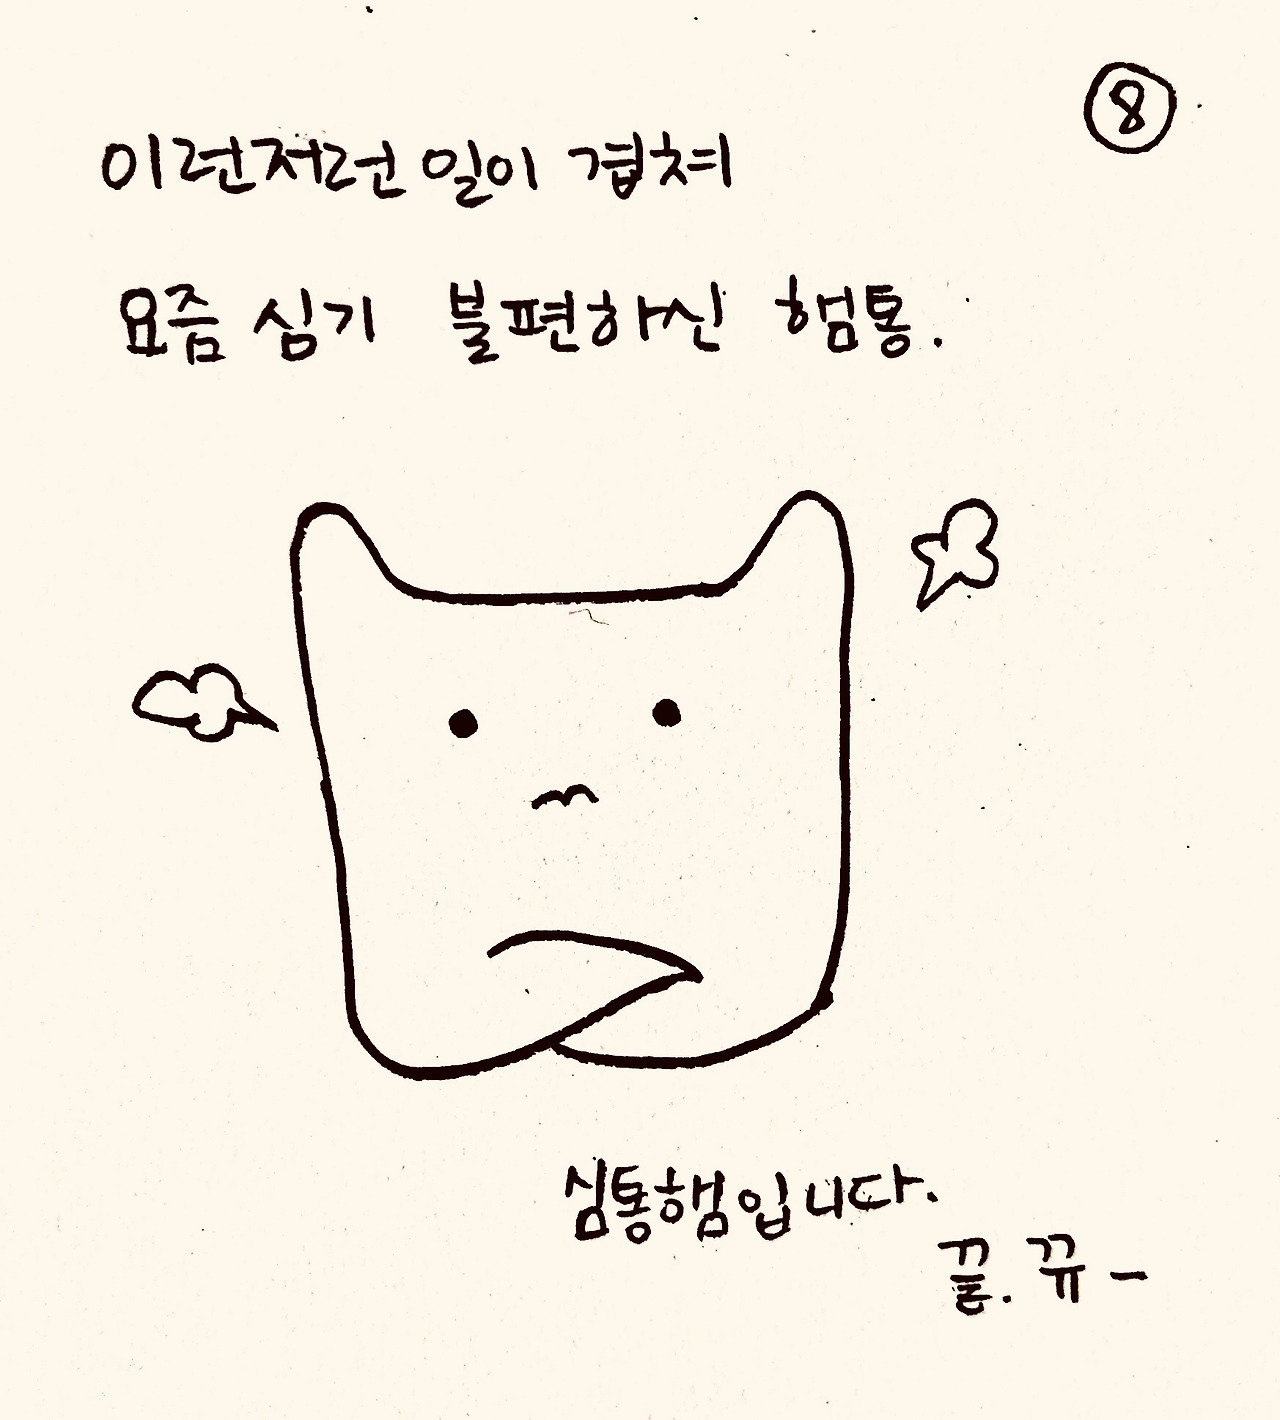 ⑧
이런저런 일이 겹쳐
요즘 심기 불편하신 험통.
심통햄입니다.
끝. 뀨-